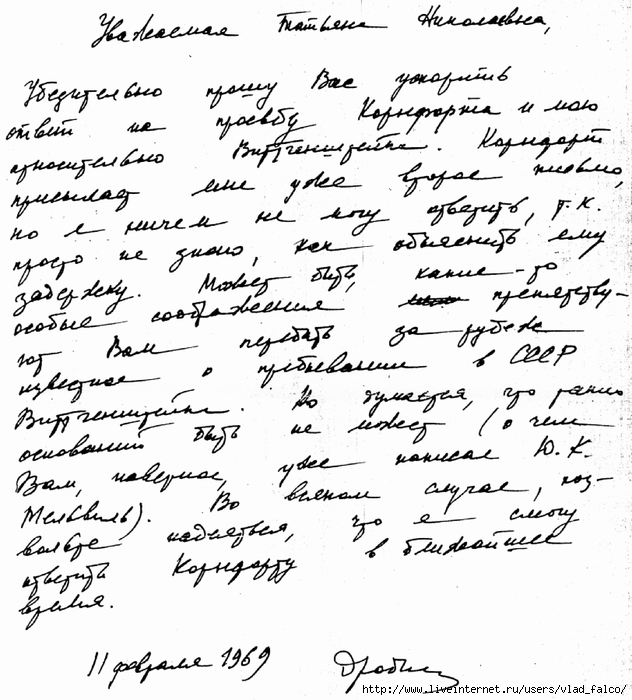 Уважаемая Татьяна Николаевна,
Убедительно прошу Вас ускорить
ответ на просьбу Корнфорта и мою
относительно Витгенштейна. Корнфорт
присылает мне уже второе письмо,
но я ничем не могу ответить, т.к.
просто не знаю, как объяснить ему
задержку. Может быть, какие-то
особые соображения препятству-
ют Вам передать за рубеж
известное о пребывании в СССР
Витгенштейна. Но думается, что таких
оснований быть не может (о чем
Вам, наверное, уже написал Ю.К.
Мельвиль). Во всяком случае, поз-
вольте надеяться, что я смогу
ответить Корнфорту в ближайшее
время.
11 февраля 1969
http://www.liveinternet.ru/users/vlad_falco/